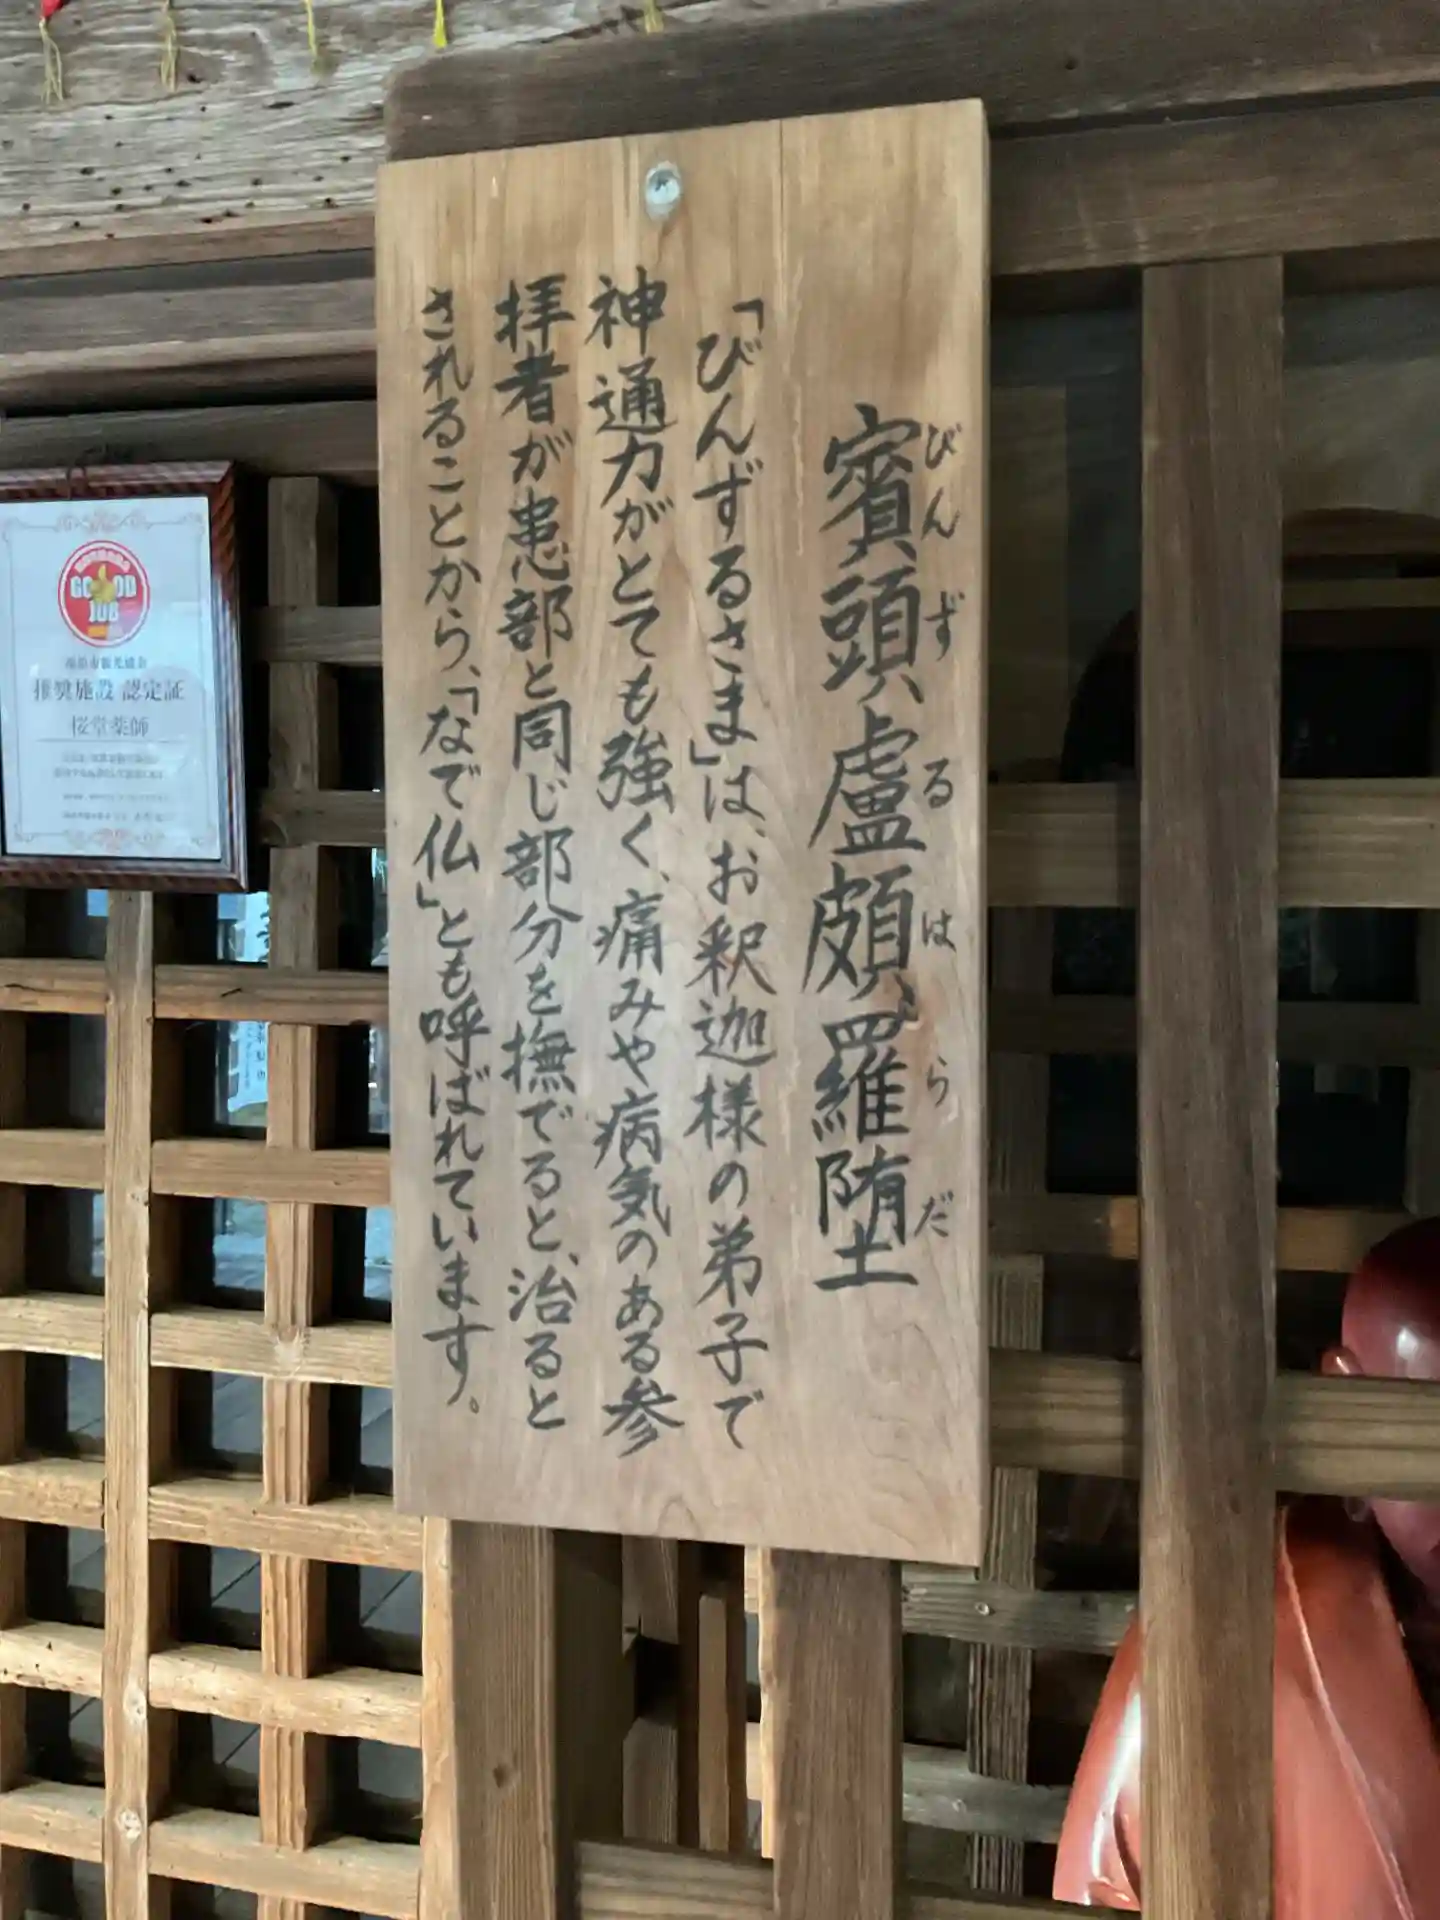 賓頭盧頗羅堕
びんずるはらだ
「びんずるさま」は、お釈迦様の弟子で
神通力がとても強く、痛みや病気のある参
拝者が患部と同じ部分を撫でると、治ると
されることから、「なで仏」とも呼ばれています。
GOOD
JOB
瑞浪市観光協会
推奨施設 認定証
桜堂薬師